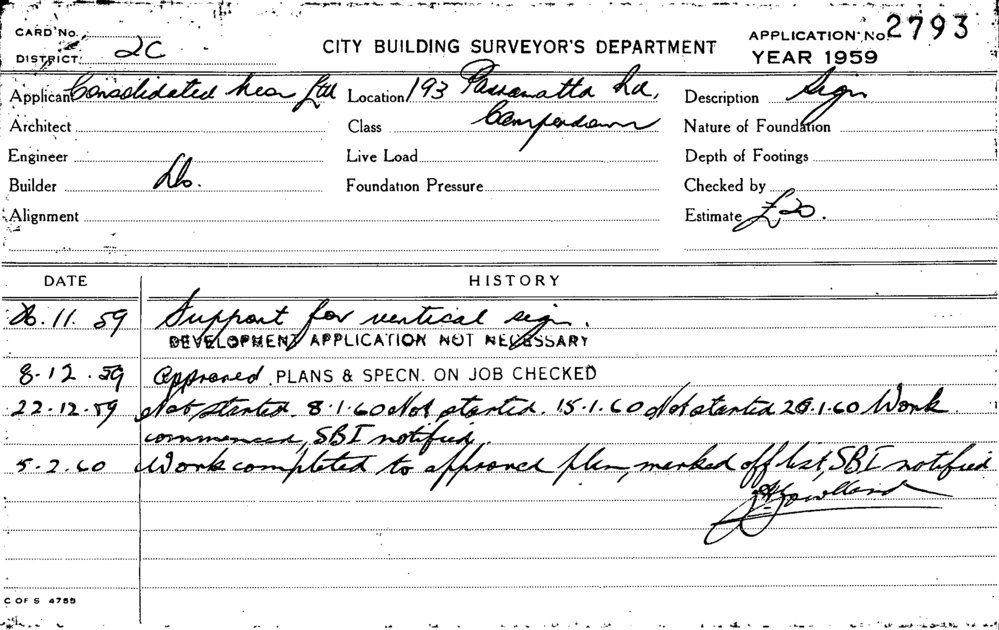 CARD No.
DISTRICT: 2C
CITY BUILDING SURVEYOR'S DEPARTMENT
APPLICATION No. 2793
YEAR 1959
Applicant Consolidated Neon Ltd Location 193 Parramatta Rd, Description Sign
Architect Class Camperdown Nature of Foundation
Engineer Live Load Depth of Footings
Builder Do. Foundation Pressure Checked by
Alignment Estimate £20.
DATE HISTORY
26.11.59 Support for vertical sign.
DEVELOPMENT APPLICATION NOT NECESSARY
8.12.59 Approved PLANS & SPECN. ON JOB CHECKED
22.12.59 Not started. 8.1.60 Not started. 15.1.60 Not started 20.1.60 Work
commenced, SBI notified.
5.2.60 Work completed to approved plan, marked off list, SBI notified
C OF S 4755